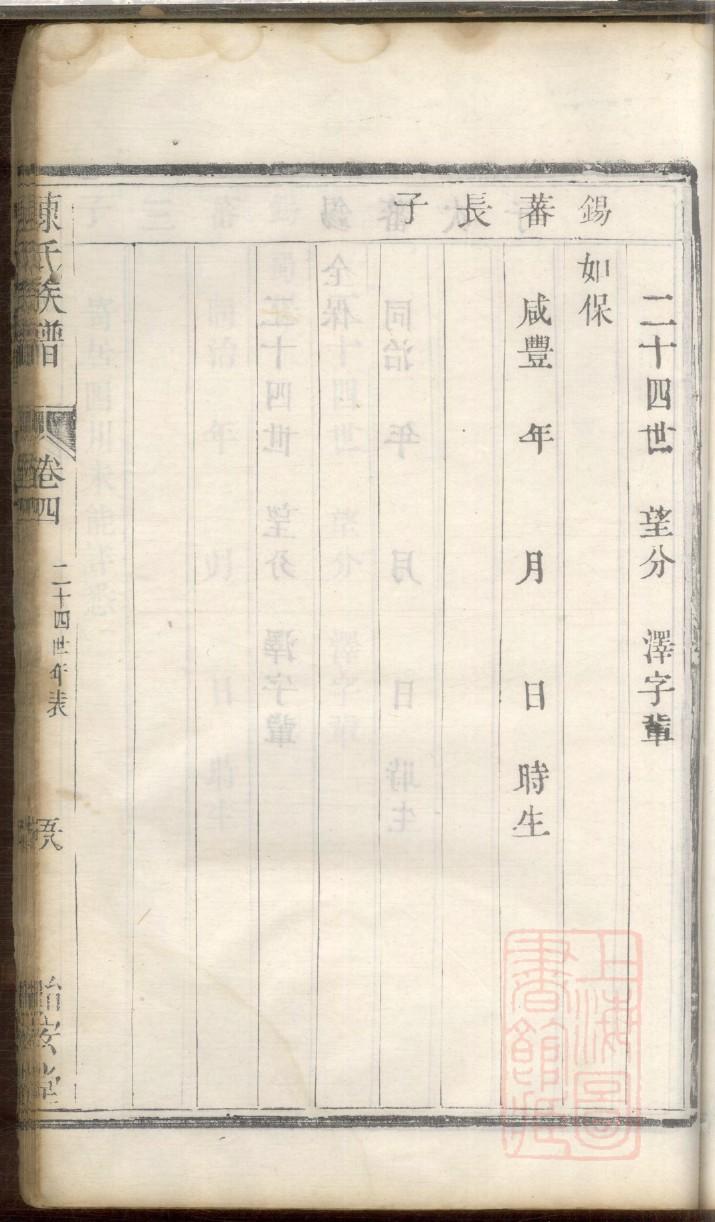 二十四世　望分　澤字輩
錫蕃長子
如保
咸豐　年　月　日　時生
陳氏族譜　卷四　二十四世年表
上海圖書館藏